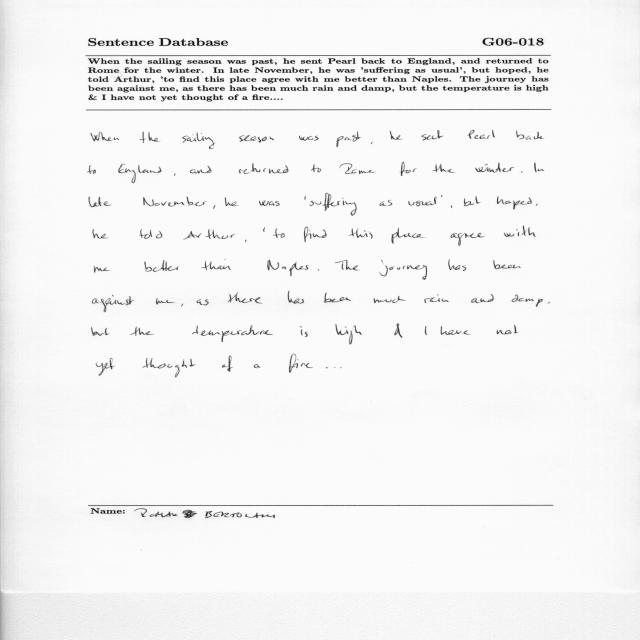 Sentence Database G06-018
When the sailing season was past, he sent Pearl back to England, and returned to
Rome for the winter. In late November, he was 'suffering as usual', but hoped, he
told Arthur, 'to find this place agree with me better than Naples. The journey has
been against me, as there has been much rain and damp, but the temperature is high
& I have not yet thought of a fire....
When the sailing season was past, he sent Pearl back
to England, and returned to Rome for the winter. In
late November, he was 'suffering as usual', but hoped,
he told Arthur, 'to find this place agree with
me better than Naples. The journey has been
against me, as there has been much rain and damp,
but the temperature is high & I have not
yet thought of a fire ...
Name: